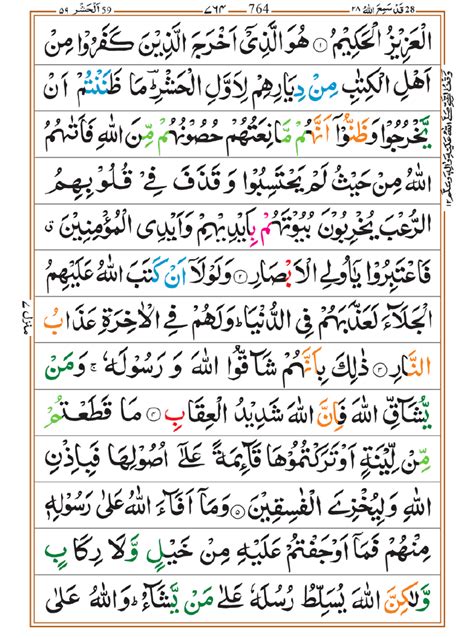 28 قَدْ سَمِعَ اللهُ ۲۸ 764 ۷۶۴ 59 اَلْحَشْر ۵۹
الْعَزِيْزُ الْحَكِيْمُ ۝۱ هُوَ الَّذِيْۤ اَخْرَجَ الَّذِيْنَ كَفَرُوْا مِنْ
اَهْلِ الْكِتٰبِ مِنْ دِيَارِهِمْ لِاَوَّلِ الْحَشْرِؔ مَا ظَنَنْتُمْ اَنْ
يَّخْرُجُوْا وَظَنُّوْۤا اَنَّهُمْ مَّانِعَتُهُمْ حُصُوْنُهُمْ مِّنَ اللهِ فَاَتٰىهُمُ
اللهُ مِنْ حَيْثُ لَمْ يَحْتَسِبُوْا وَ قَذَفَ فِيْ قُلُوْبِهِمُ
الرُّعْبَ يُخْرِبُوْنَ بُيُوْتَهُمْ بِاَيْدِيْهِمْ وَاَيْدِي الْمُؤْمِنِيْنَ ق
فَاعْتَبِرُوْا يٰۤاُولِي الْاَبْصَارِ ۝۲ وَلَوْلَاۤ اَنْ كَتَبَ اللهُ عَلَيْهِمُ
الْجَلَآءَ لَعَذَّبَهُمْ فِي الدُّنْيَا ؕ وَلَهُمْ فِي الْاٰخِرَةِ عَذَابُ
النَّارِ ۝۳ ذٰلِكَ بِاَنَّهُمْ شَآقُّوا اللهَ وَ رَسُوْلَهٗ ۚ وَمَنْ
يُّشَآقِّ اللهَ فَاِنَّ اللهَ شَدِيْدُ الْعِقَابِ ۝۴ مَا قَطَعْتُمْ
مِّنْ لِّيْنَةٍ اَوْ تَرَكْتُمُوْهَا قَآئِمَةً عَلٰۤى اُصُوْلِهَا فَبِاِذْنِ
اللهِ وَلِيُخْزِيَ الْفٰسِقِيْنَ ۝۵ وَمَاۤ اَفَآءَ اللهُ عَلٰى رَسُوْلِهٖ
مِنْهُمْ فَمَاۤ اَوْجَفْتُمْ عَلَيْهِ مِنْ خَيْلٍ وَّلَا رِكَابٍ
وَّلٰكِنَّ اللهَ يُسَلِّطُ رُسُلَهٗ عَلٰى مَنْ يَّشَآءُ ؕ وَاللهُ عَلٰى
منزل ۷